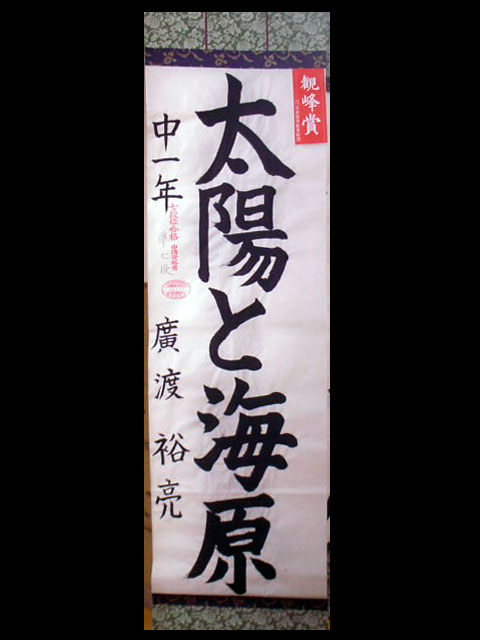 観峰賞
太陽と海原
中一年 廣渡裕亮
準七段